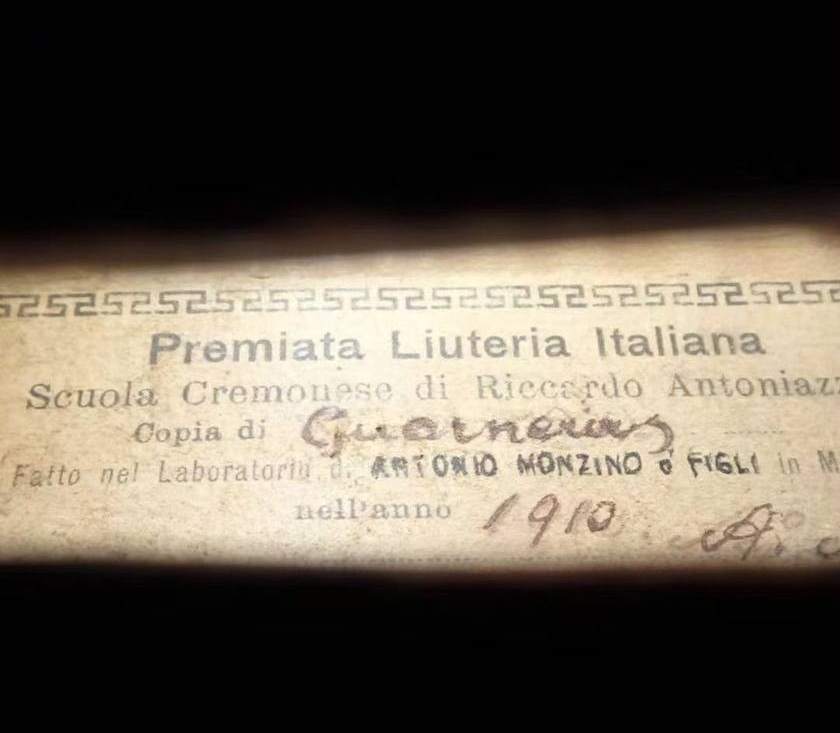 Premiata Liuteria Italiana
Scuola Cremonese di Riccardo Antoniazz
Copia di Guarnerius
Fatto nel Laboratorio di ANTONIO MONZINO e FIGLI in M
nell'anno 1910